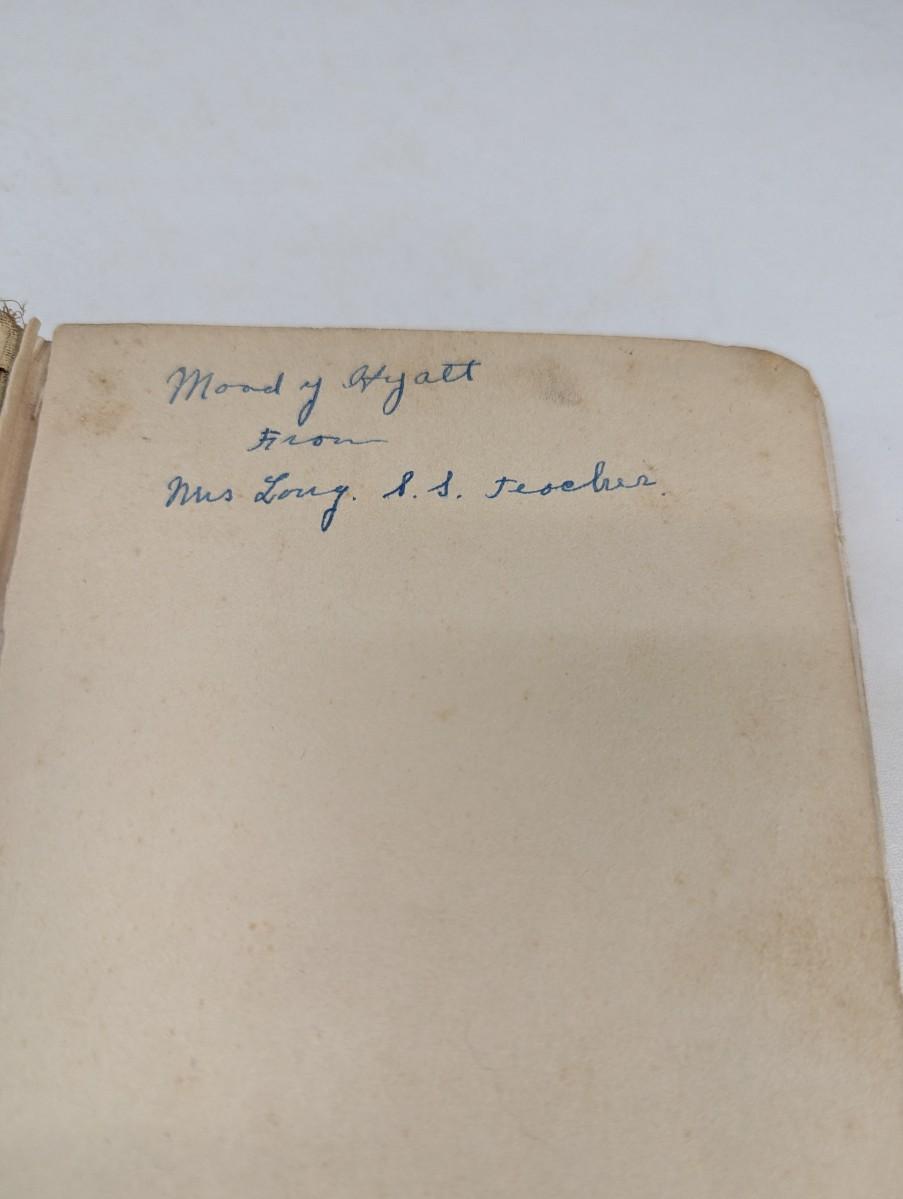 Moody Hyatt
From
Mrs Long. S. S. Teacher.